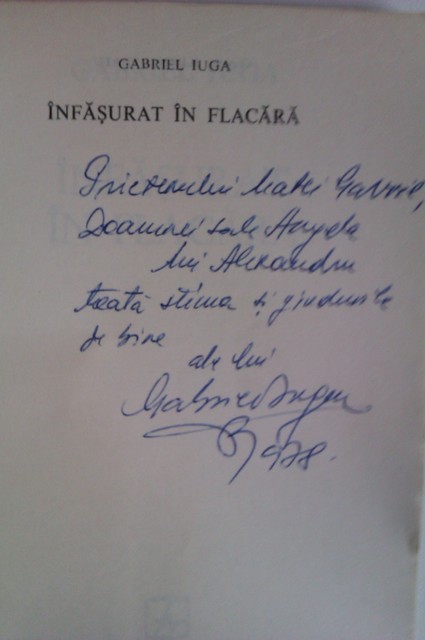 GABRIEL IUGA
ÎNFĂȘURAT ÎN FLACĂRĂ
Prietenului Matei Gavril,
Doamnei sale Angela
lui Alexandru
toată stima și gîndurile
de bine
ale lui
Gabriel Iuga
1978.